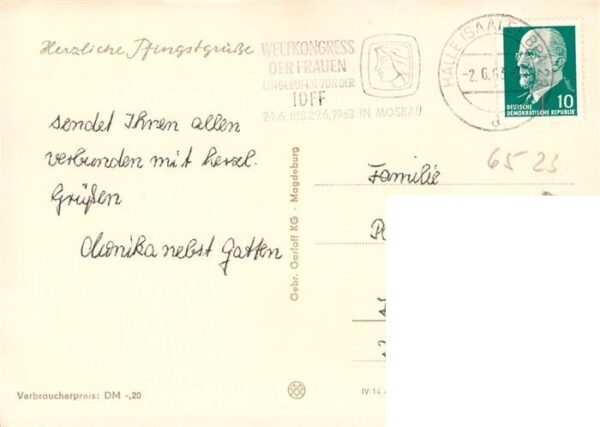 Herzliche Pfingstgrüße
WELTKONGRESS
DER FRAUEN
EINBERUFEN VON DER
IDFF
24.6. BIS 29.6.1963 IN MOSKAU
HALLE (SAALE)
-2.6.63
d
DEUTSCHE
DEMOKRATISCHE REPUBLIK
10
sendet Ihnen allen
verbunden mit herzl.
Grüßen
Monika nebst Gatten
6523
Familie
Gebr. Garloff KG · Magdeburg
Verbraucherpreis: DM -,20
IV-14